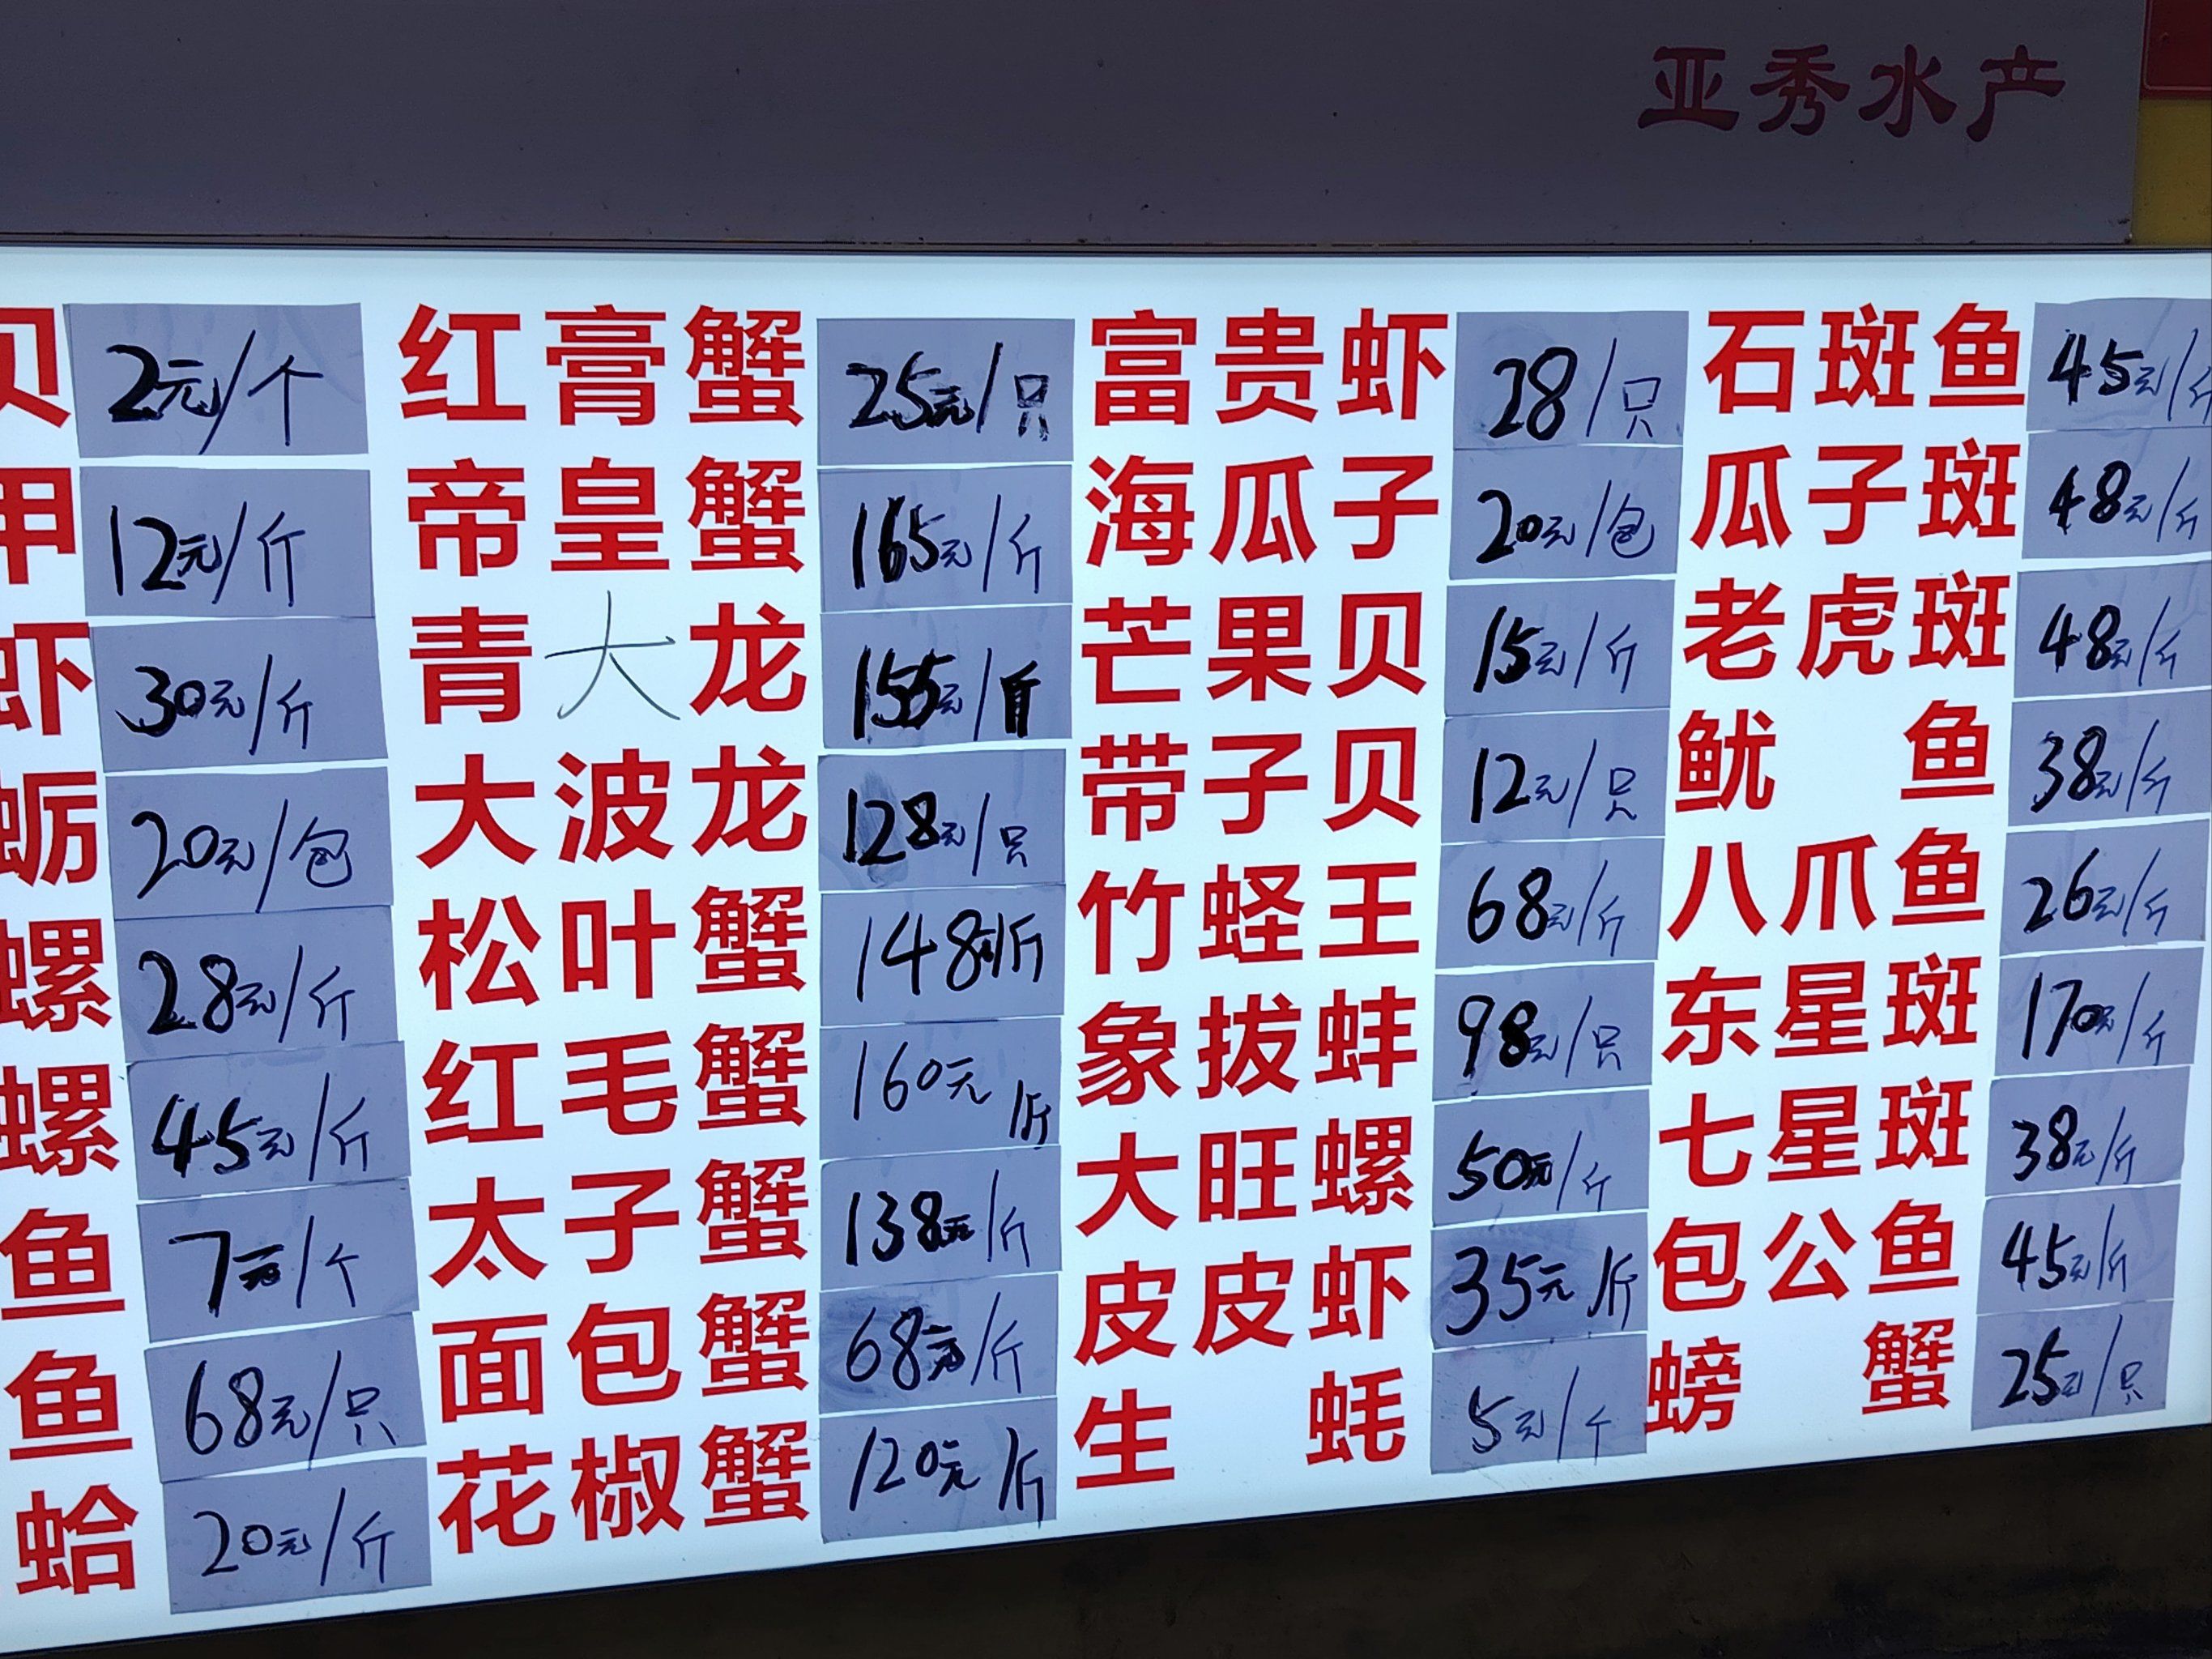 亚秀水产
贝 2元/个 红膏蟹 25元/只 富贵虾 28/只 石斑鱼 45元/斤
甲 12元/斤 帝皇蟹 165元/斤 海瓜子 20元/包 瓜子斑 48元/斤
虾 30元/斤 青大龙 155元/斤 芒果贝 15元/斤 老虎斑 48元/斤
蛎 20元/包 大波龙 128元/只 带子贝 12元/只 鱿鱼 38元/斤
螺 28元/斤 松叶蟹 148元/斤 竹蛏王 68元/斤 八爪鱼 26元/斤
螺 45元/斤 红毛蟹 160元/斤 象拔蚌 98元/只 东星斑 170元/斤
鱼 7元/个 太子蟹 138元/斤 大旺螺 50元/斤 七星斑 38元/斤
鱼 68元/只 面包蟹 68元/斤 皮皮虾 35元/斤 包公鱼 45元/斤
蛤 20元/斤 花椒蟹 120元/斤 生蚝 5元/个 螃蟹 25元/只